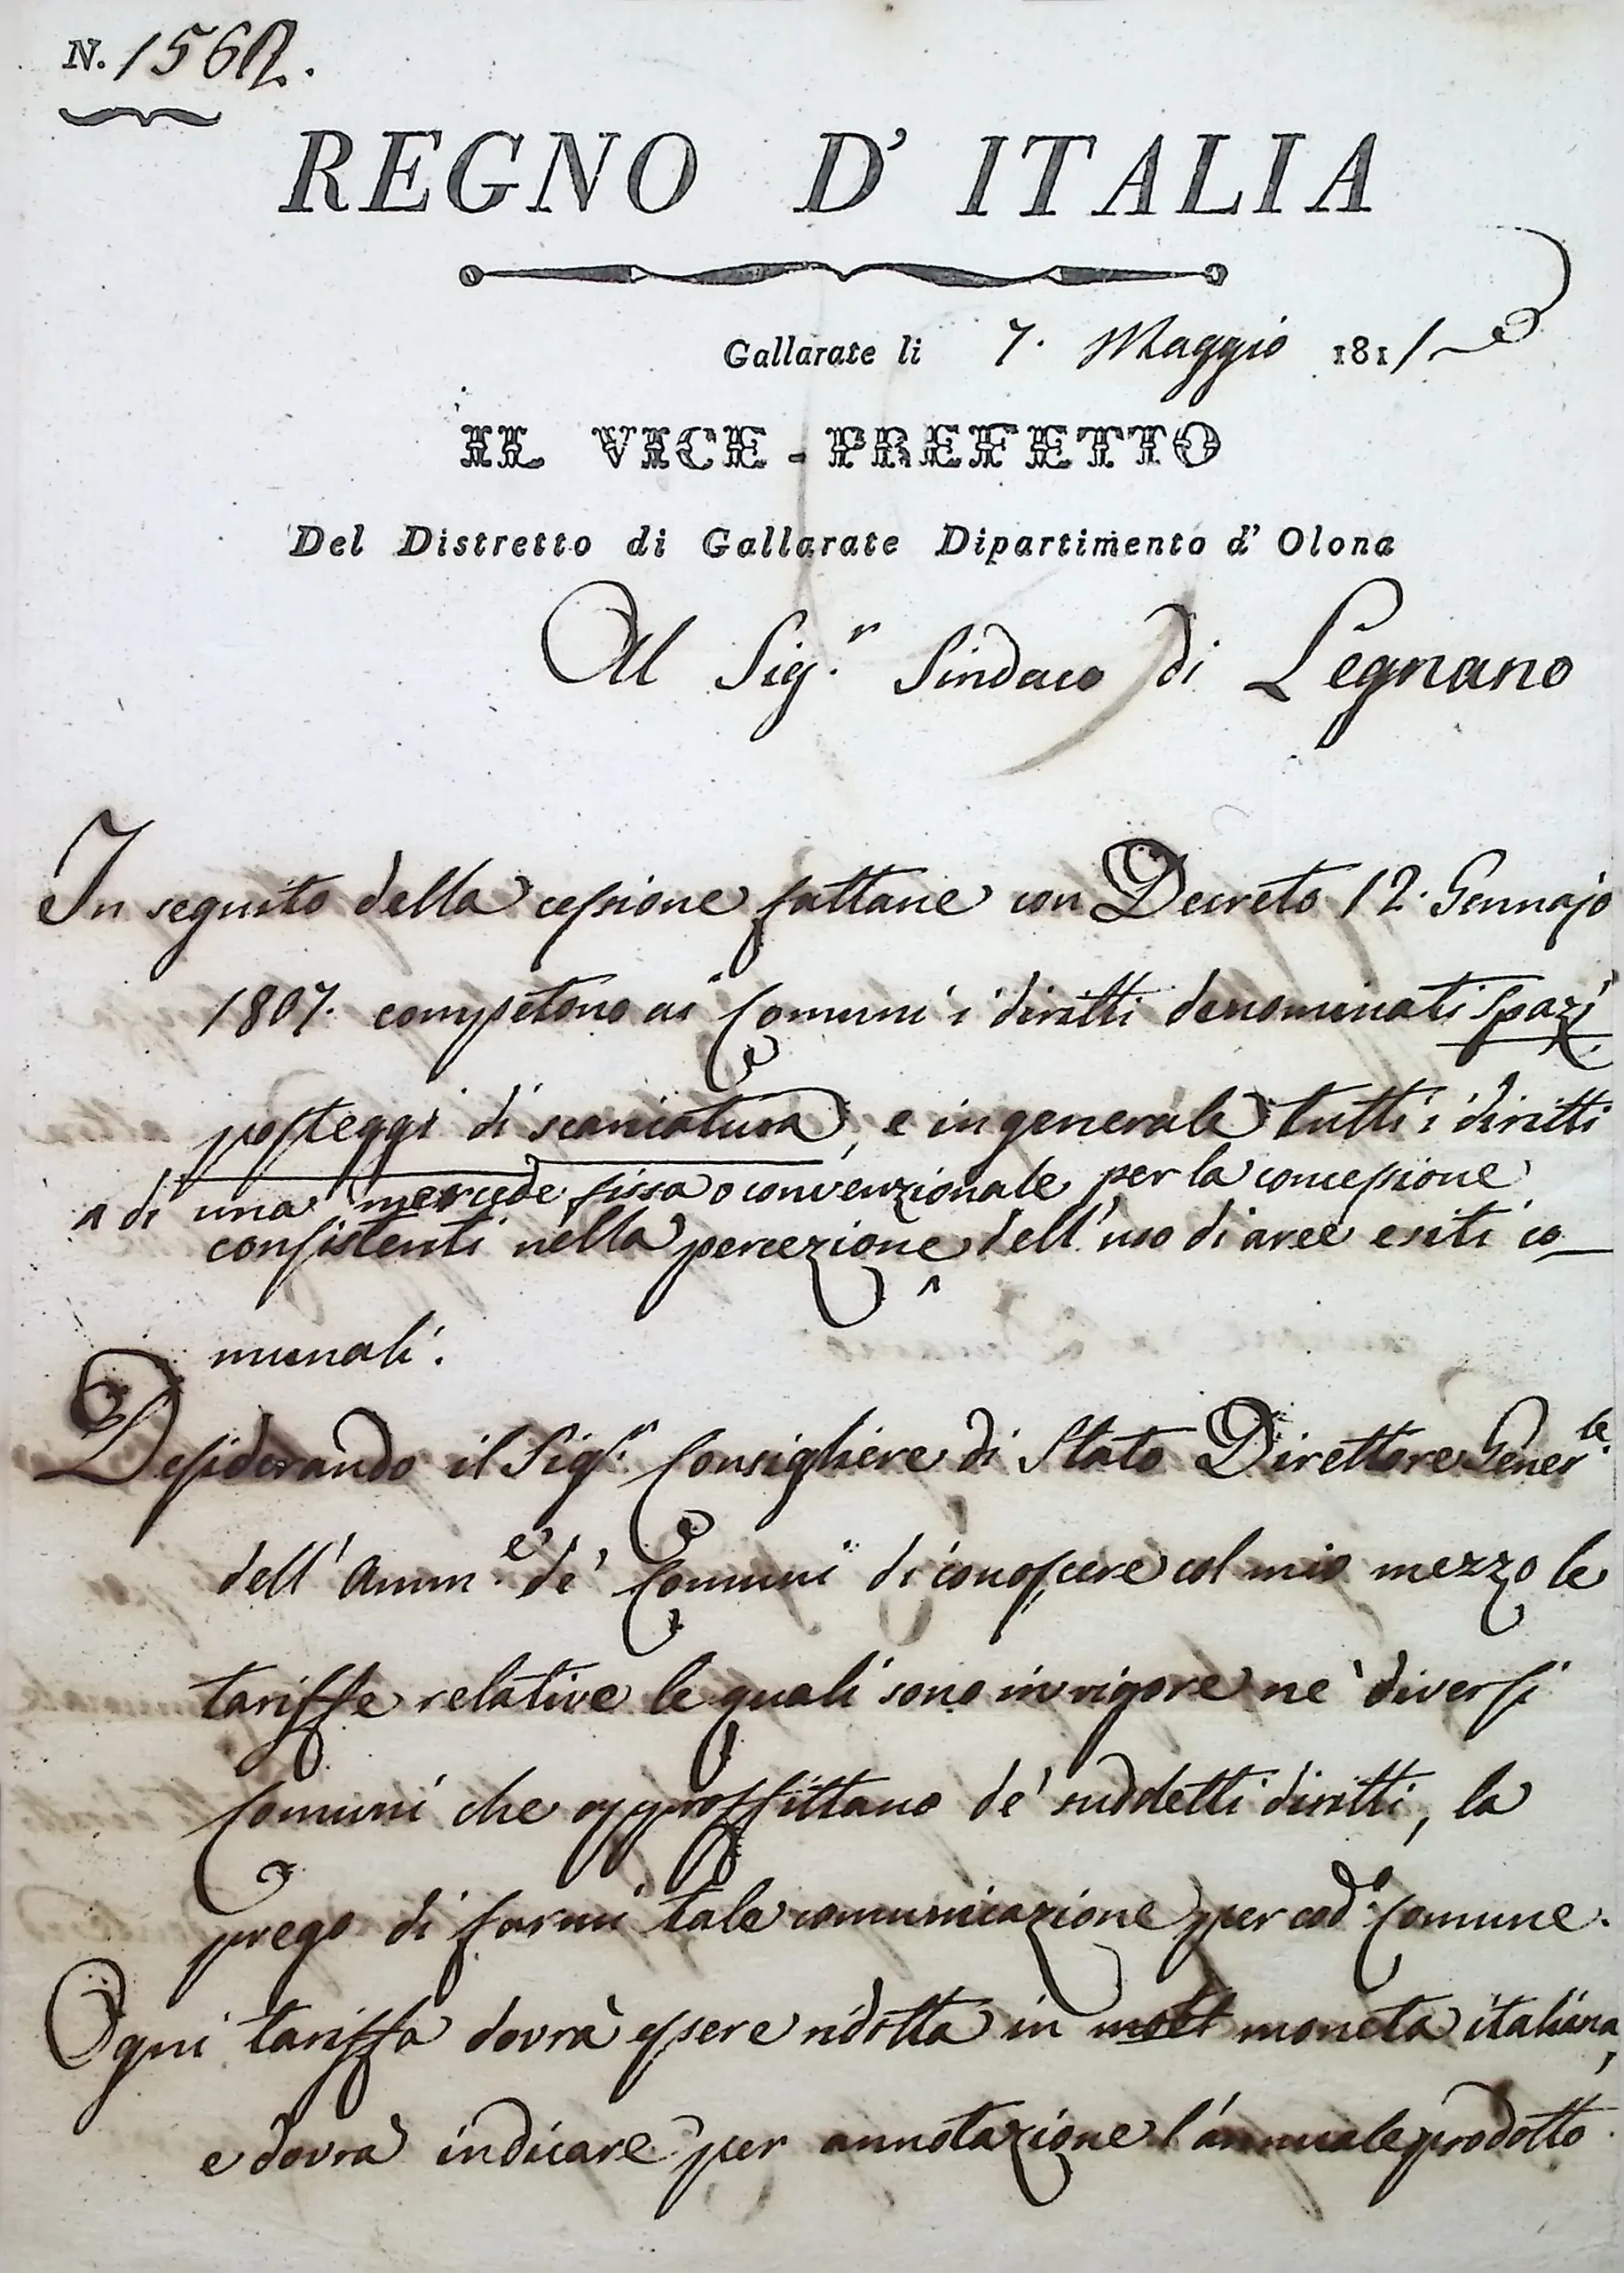 N. 1562.
REGNO D' ITALIA
Gallarate li 7. Maggio 1811
IL VICE-PREFETTO
Del Distretto di Gallarate Dipartimento d' Olona
Al Sig.r Sindaco di Legnano
In seguito della cessione fattane con Decreto 12. Gennajo
1807. competono ai Comuni i diritti denominati Spazj
posteggi di scaricatura, e in generale tutti i diritti
^ di una mercede fissa o convenzionale per la concessione
consistenti nella percezione ^ dell'uso di aree e siti co-
munali.
Desiderando il Sig.r Consigliere di Stato Direttore Gener.le
dell'Amm.e de' Comuni di conoscere col mio mezzo le
tariffe relative le quali sono in vigore ne' diversi
Comuni che approffittano de' suddetti diritti, la
prego di farmi tale comunicazione per cod.o Comune.
Ogni tariffa dovrà essere ridotta in moneta italiana,
e dovrà indicare per annotazione l'annuale prodotto